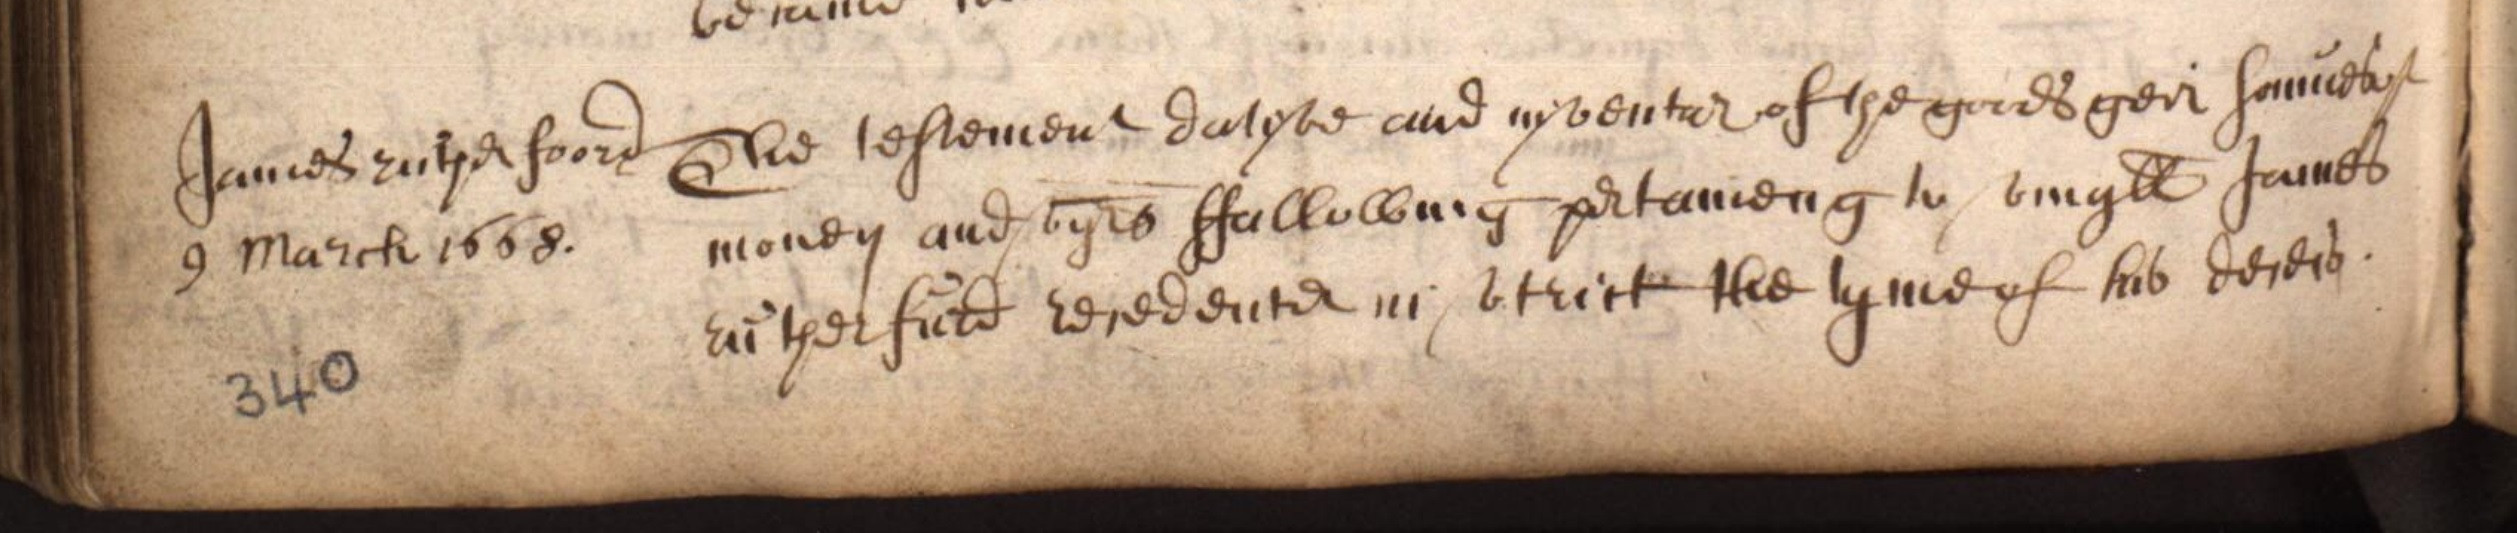 James rutherfoord
9 March 1668.
340
The testement datyve and inventar of the goods geir soumes of
money and vyrs ffallowing pertaineng to umqll James
rutherfurd resedenter in utrick the tyme of his deseis.